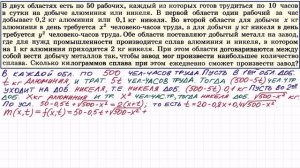 В двух областях есть по 50 рабочих, каждый из которых готов трудиться по 10 часов
в сутки на добыче алюминия или никеля. В первой области один рабочий за час
добывает 0,2 кг алюминия или 0,1 кг никеля. Во второй области для добычи x кг
алюминия в день требуется x² человеко-часов труда, а для добычи y кг никеля в день
требуется y² человеко-часов труда. Обе области поставляют добытый металл на завод,
где для нужд промышленности производится сплав алюминия и никеля, в котором на
1 кг алюминия приходится 2 кг никеля. При этом области договариваются между
собой вести добычу металлов так, чтобы завод мог произвести наибольшее количество
сплава. Сколько килограммов сплава при таких условиях ежедневно сможет произвести завод?
В КАЖДОЙ ОБЛ. ПО 500 ЧЕЛ-ЧАСОВ ТРУДА ПУСТЬ В ОБЛ. ДОБ.
t кг АЛЮМИНИЯ И ТРАТ. 5t ЧЕЛ-ЧАСОВ ТРУДА. ТОГДА (500-5t) ЧЕЛ-ЧТР
УХОДИТ НА ДОБ НИКЕЛЯ, Т.Е. НИКЕЛЯ ДОБ. (500-5t)·0,1 кг ПУСТЬ ВО 2 ОБЛ
ДОБ. X кг АЛЮМИНИЯ И ТР. X² ЧЕЛ-ЧАС, ТОГДА НИКЕЛЯ ДОБ. √500-x² кг
ПО УСЛ 50-0,5t+√500-x² = 2(x+t), ТО ЕСТЬ t=20-0,8x+0,4√500-x²
m(x,t)=(x+t)+50-0,5t+√500-x²